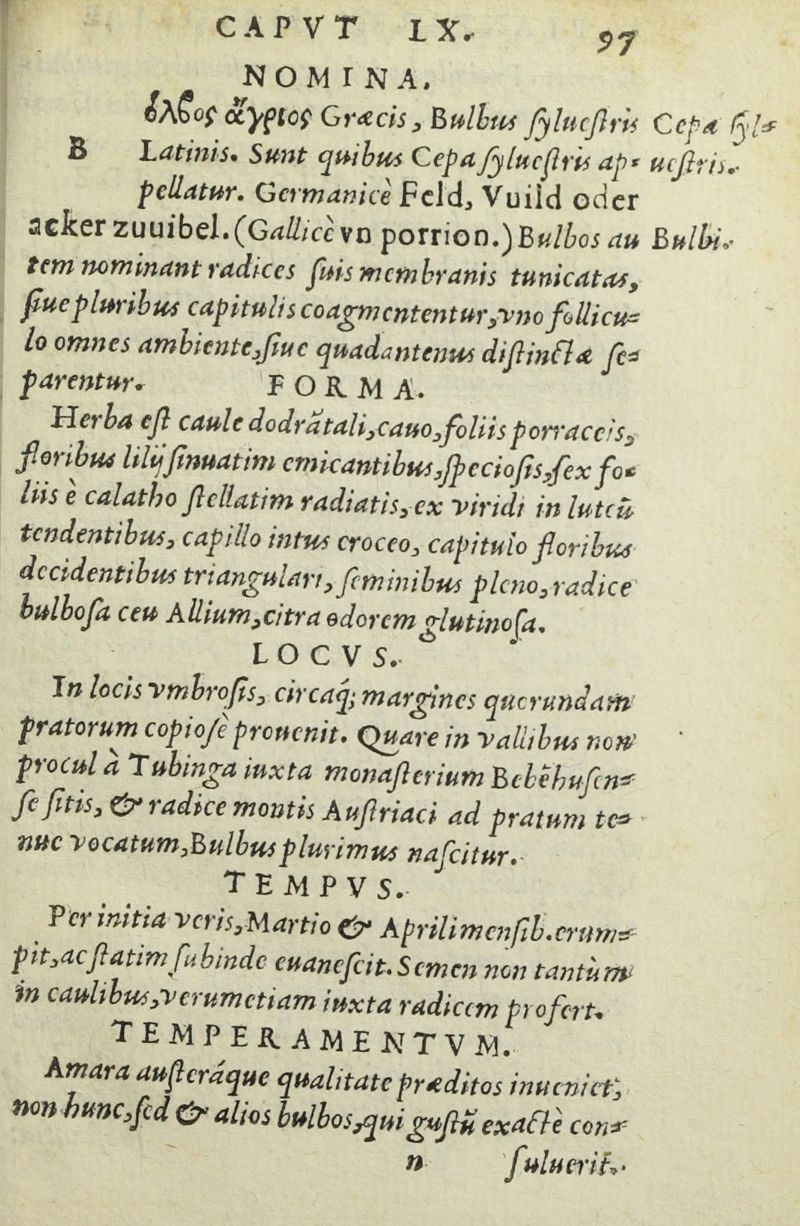 CAPVT LX.
97
NOMINA.
όλβος ἄγριος Græcis, Bulbus ſylueſtris
Cepa ſyl-
B
Latinis. Sunt quibus Cepa ſylueſtris ap-
ueſtris.
pellatur. Germanicè Feld, Vuild oder
acker zuuibel. (Gallicè vn porrion.) Bulbos au
Bulbi.
tem nominant radices ſuis membranis tunicatas,
ſiue pluribus capitulis coagmententur, vno follicu-
lo omnes ambiente, ſiue quadantenus diſtinctæ ſe-
parentur.
FORMA.
Herba eſt caule dodrãtali, cauo, foliis porraceis,
floribus lilij ſinuatim emicantibus, ſpecioſis, ſex fo-
liis è calatho ſtellatim radiatis, ex viridi in luteũ
tendentibus, capillo intus croceo, capitulo floribus
decidentibus triangulari, ſeminibus pleno, radice
bulboſa ceu Allium, citra odorem glutinoſa.
LOCVS.
In locis vmbroſis, circaq́; margines quorundam
pratorum copioſè prouenit. Quare in vallibus non
procul à Tubinga iuxta monaſterium Bebẽhuſen-
ſe ſitis, & radice montis Auſtriaci ad pratum te-
nue vocatum, Bulbus plurimus naſcitur.
TEMPVS.
Per initia veris, Martio & Aprili menſib. erum-
pit, ac ſtatim ſubinde euaneſcit. Semen non tantùm
in caulibus, verumetiam iuxta radicem profert.
TEMPERAMENTVM.
Amara auſteráque qualitate præditos inueniet,
non hunc, ſed & alios bulbos, qui guſtũ exactè con-
n
ſuluerit.